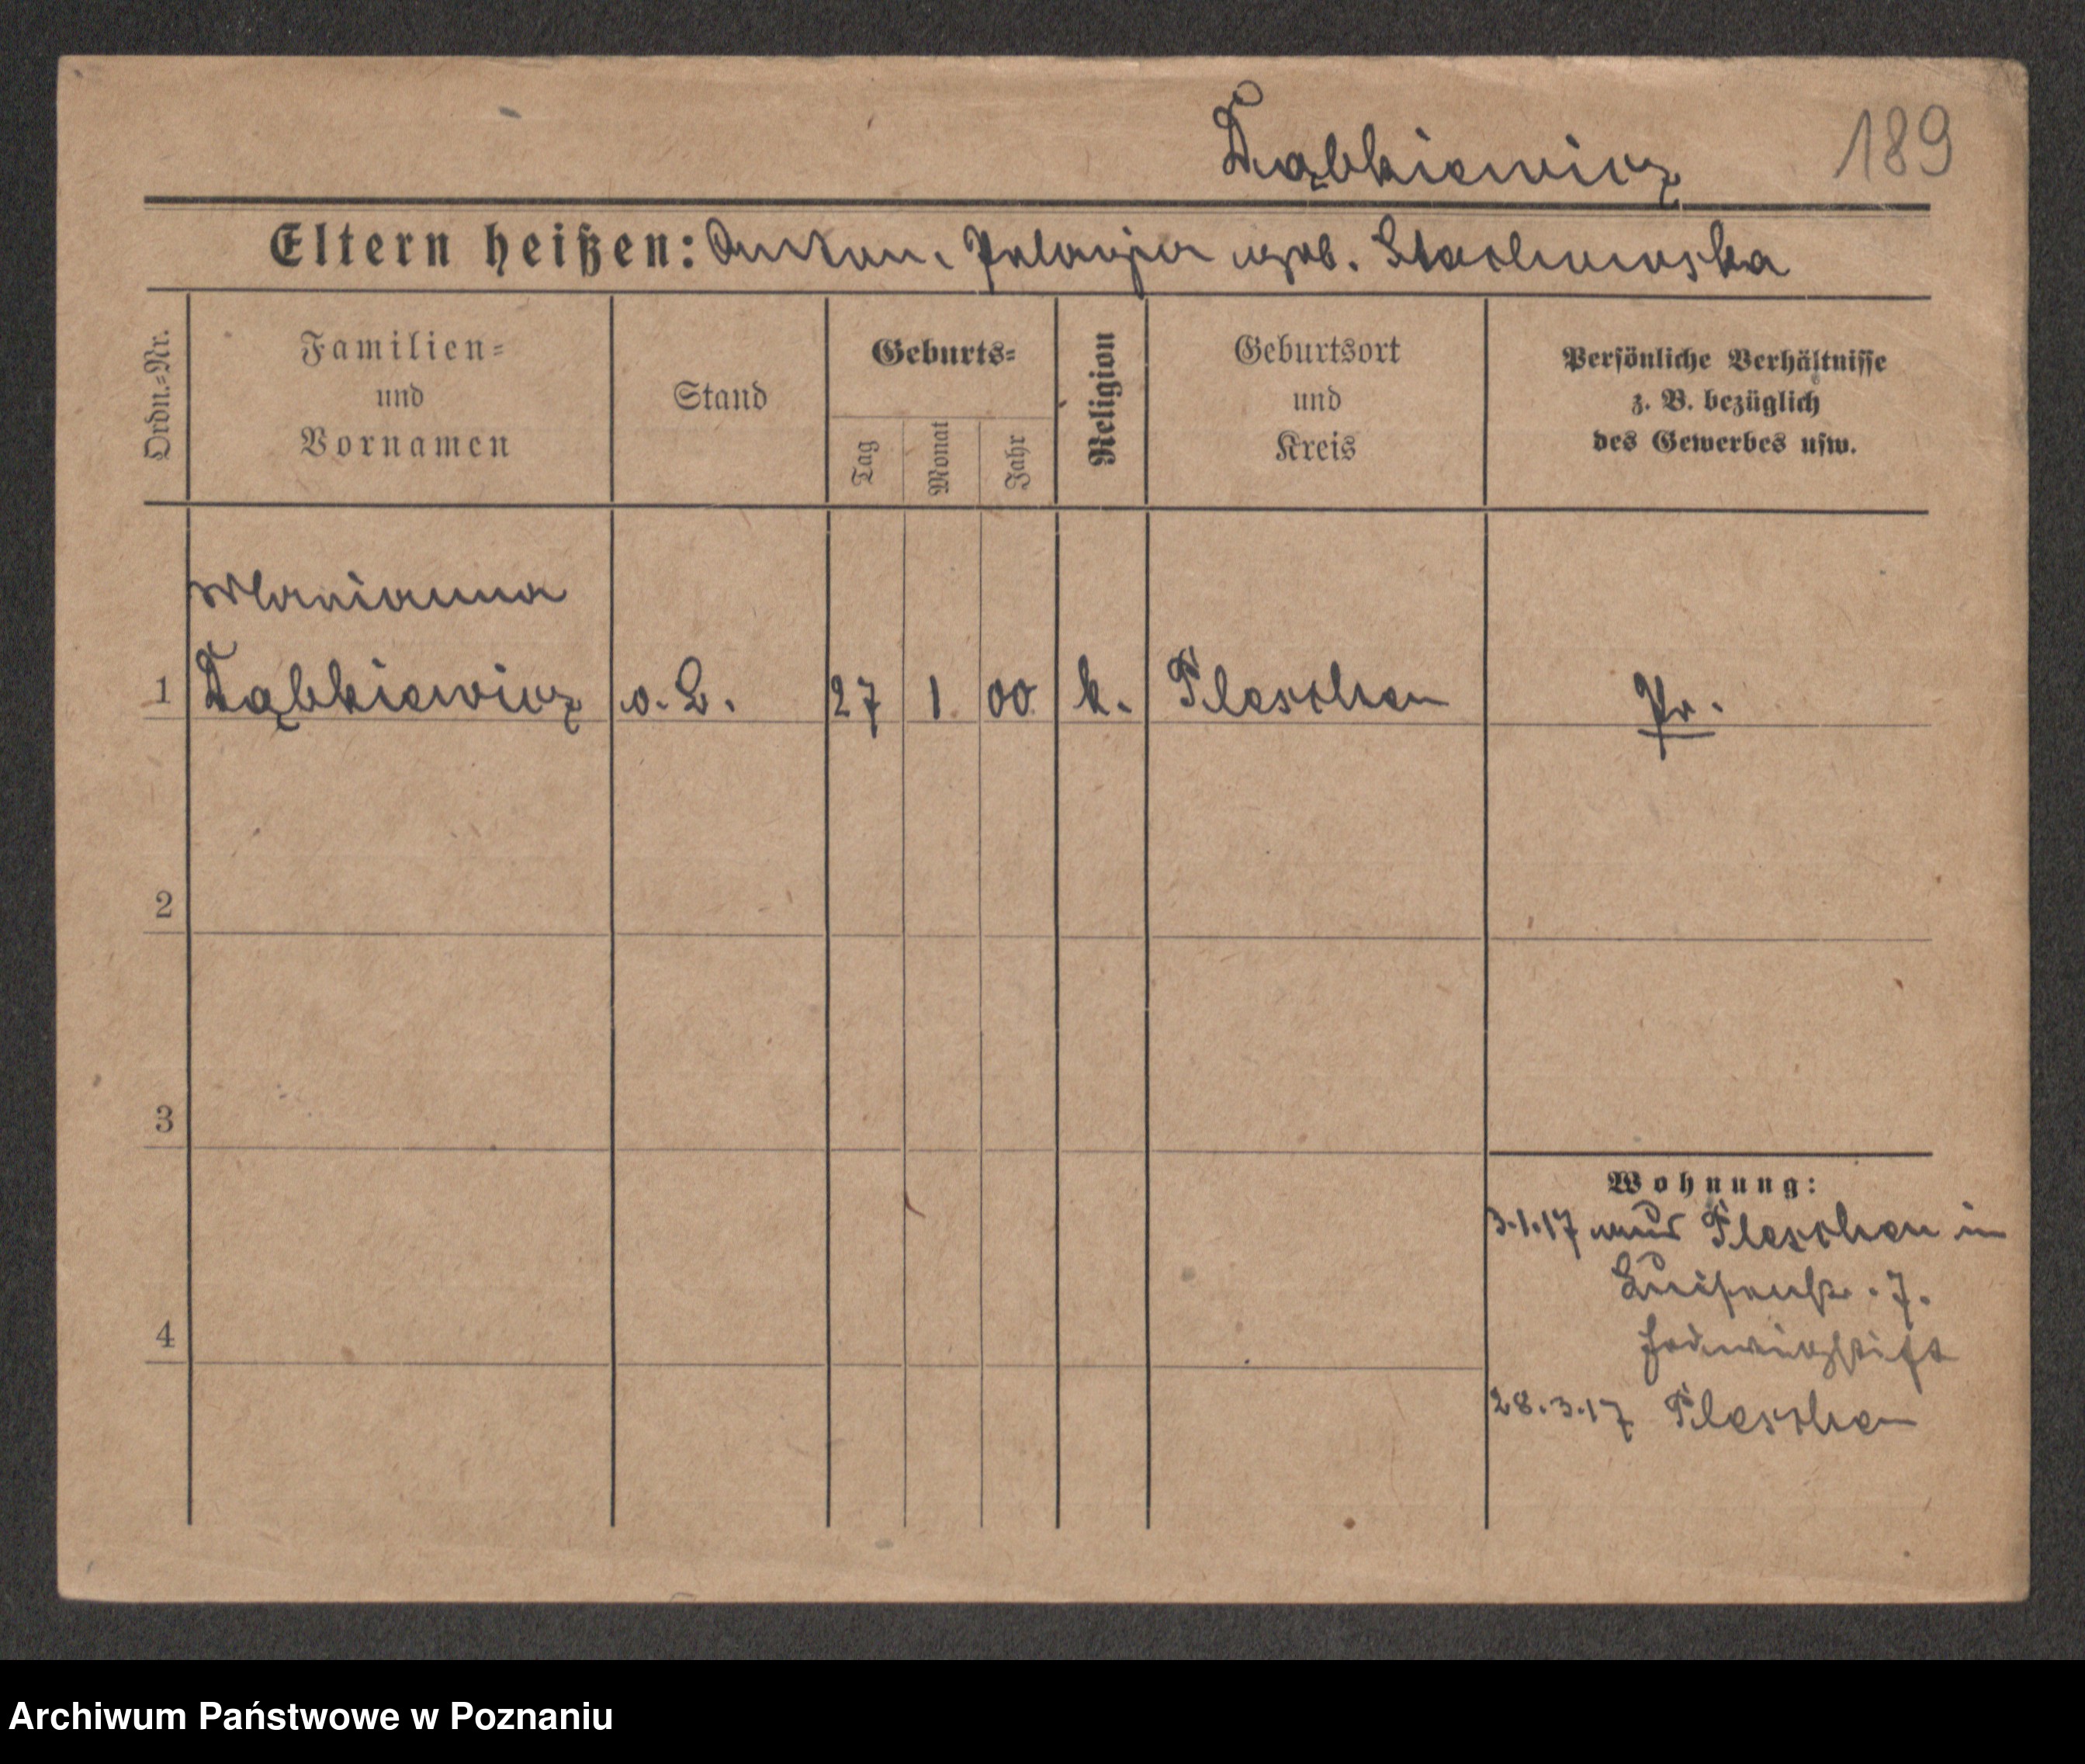 Dąbkiewicz 189
Eltern heißen: Anton. Pelagia geb. Stachowska
Ordn.=Nr.
Familien=
und
Vornamen
Stand
Geburts=
Tag
Monat
Jahr
Religion
Geburtsort
und
Kreis
Persönliche Verhältnisse
z. B. bezüglich
des Gewerbes usw.
Marianna
1 Dąbkiewicz o. B. 27 1 00 k. Pleschen Pr.
2
3
4
Wohnung:
3.1.17 aus Pleschen in
Luisenstr. 7.
Hedwigstift
28.3.17 Pleschen
Archiwum Państwowe w Poznaniu